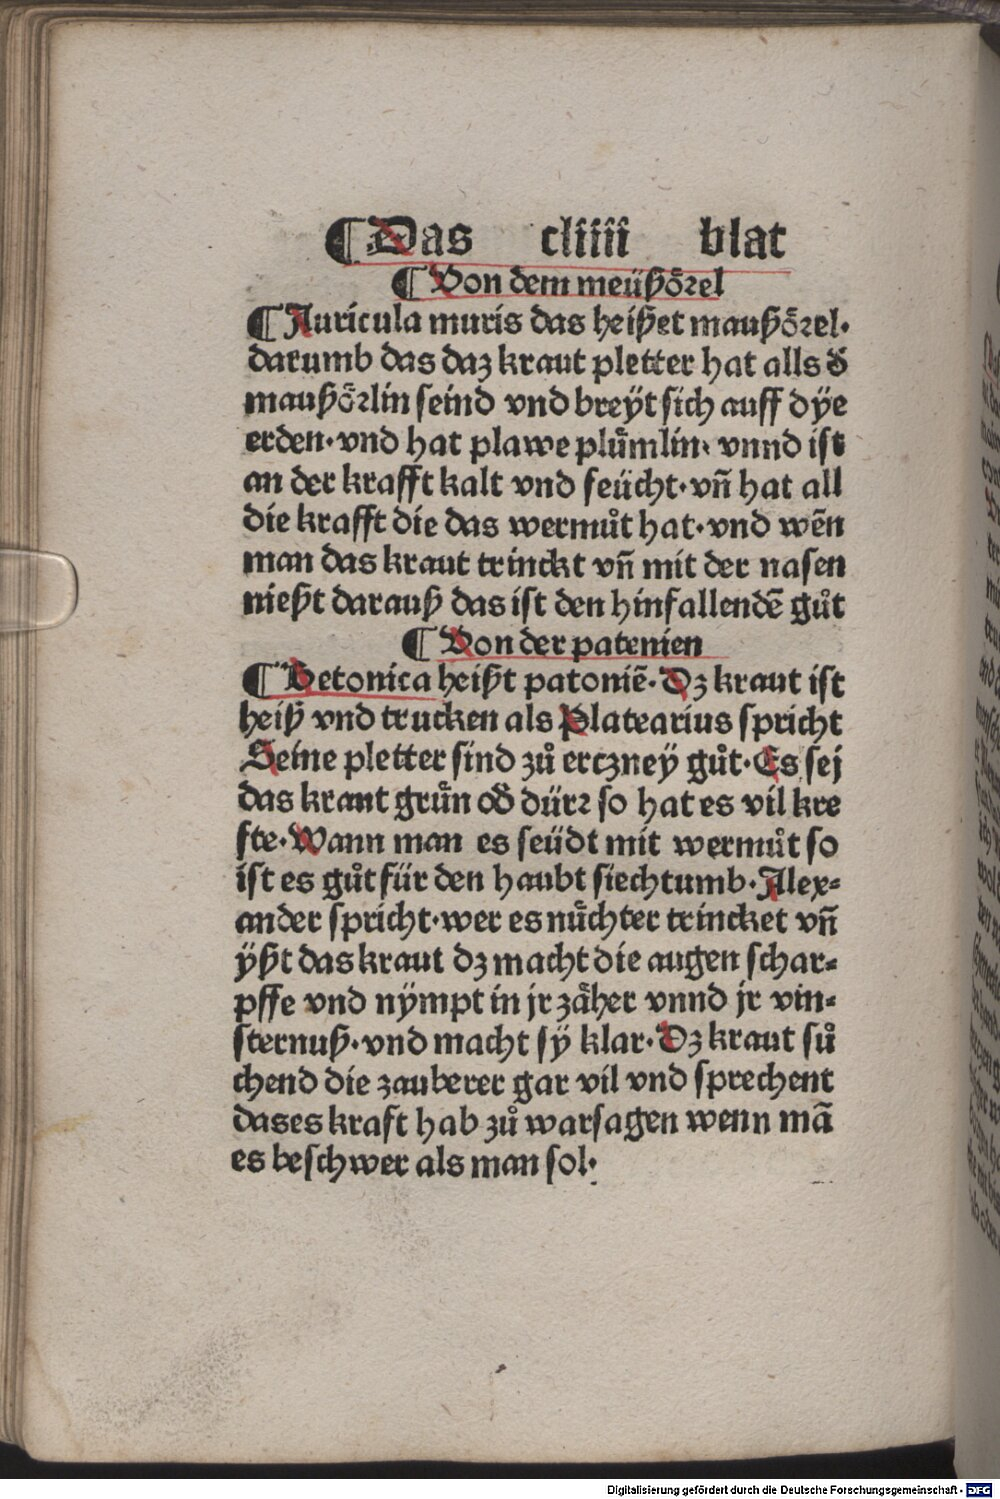 ¶Das cliiii blat
¶Von dem meüßoͤrel
¶Auricula muris das heißet maußoͤrel·
darumb das daz kraut pletter hat alls dʼ
maußoͤrlin seind vnd breÿt sich auff dÿe
erden·vnd hat plawe pluͤmlin· vnnd ist
an der krafft kalt vnd feücht·vn̄ hat all
die krafft die das wermuͦt hat·vnd wēn
man das kraut trinckt vn̄ mit der nasen
nießt darauß das ist den hinfallendē guͦt
¶Von der patenien
¶Betonica heißt patoniē·Dz kraut ist
heiß vnd trucken als Platearius spricht
Seine pletter sind zuͦ erczneÿ guͦt·Es sej
das kraut gruͤn odʼ dürr so hat es vil kre
fte·Wann man es seüdt mit wermuͦt so
ist es guͦt für den haubt siechtumb·Alex-
ander spricht·wer es nuͤchter trincket vn̄
ÿßt das kraut dz macht die augen schar-
pffe vnd nÿmpt in jr zaͤher vnnd jr vin-
sternuß·vnd macht sÿ klar·Dz kraut suͦ
chend die zauberer gar vil vnd sprechent
das es kraft hab zuͦ warsagen wenn mā
es beschwer als man sol·
Digitalisierung gefördert durch die Deutsche Forschungsgemeinschaft - DFG